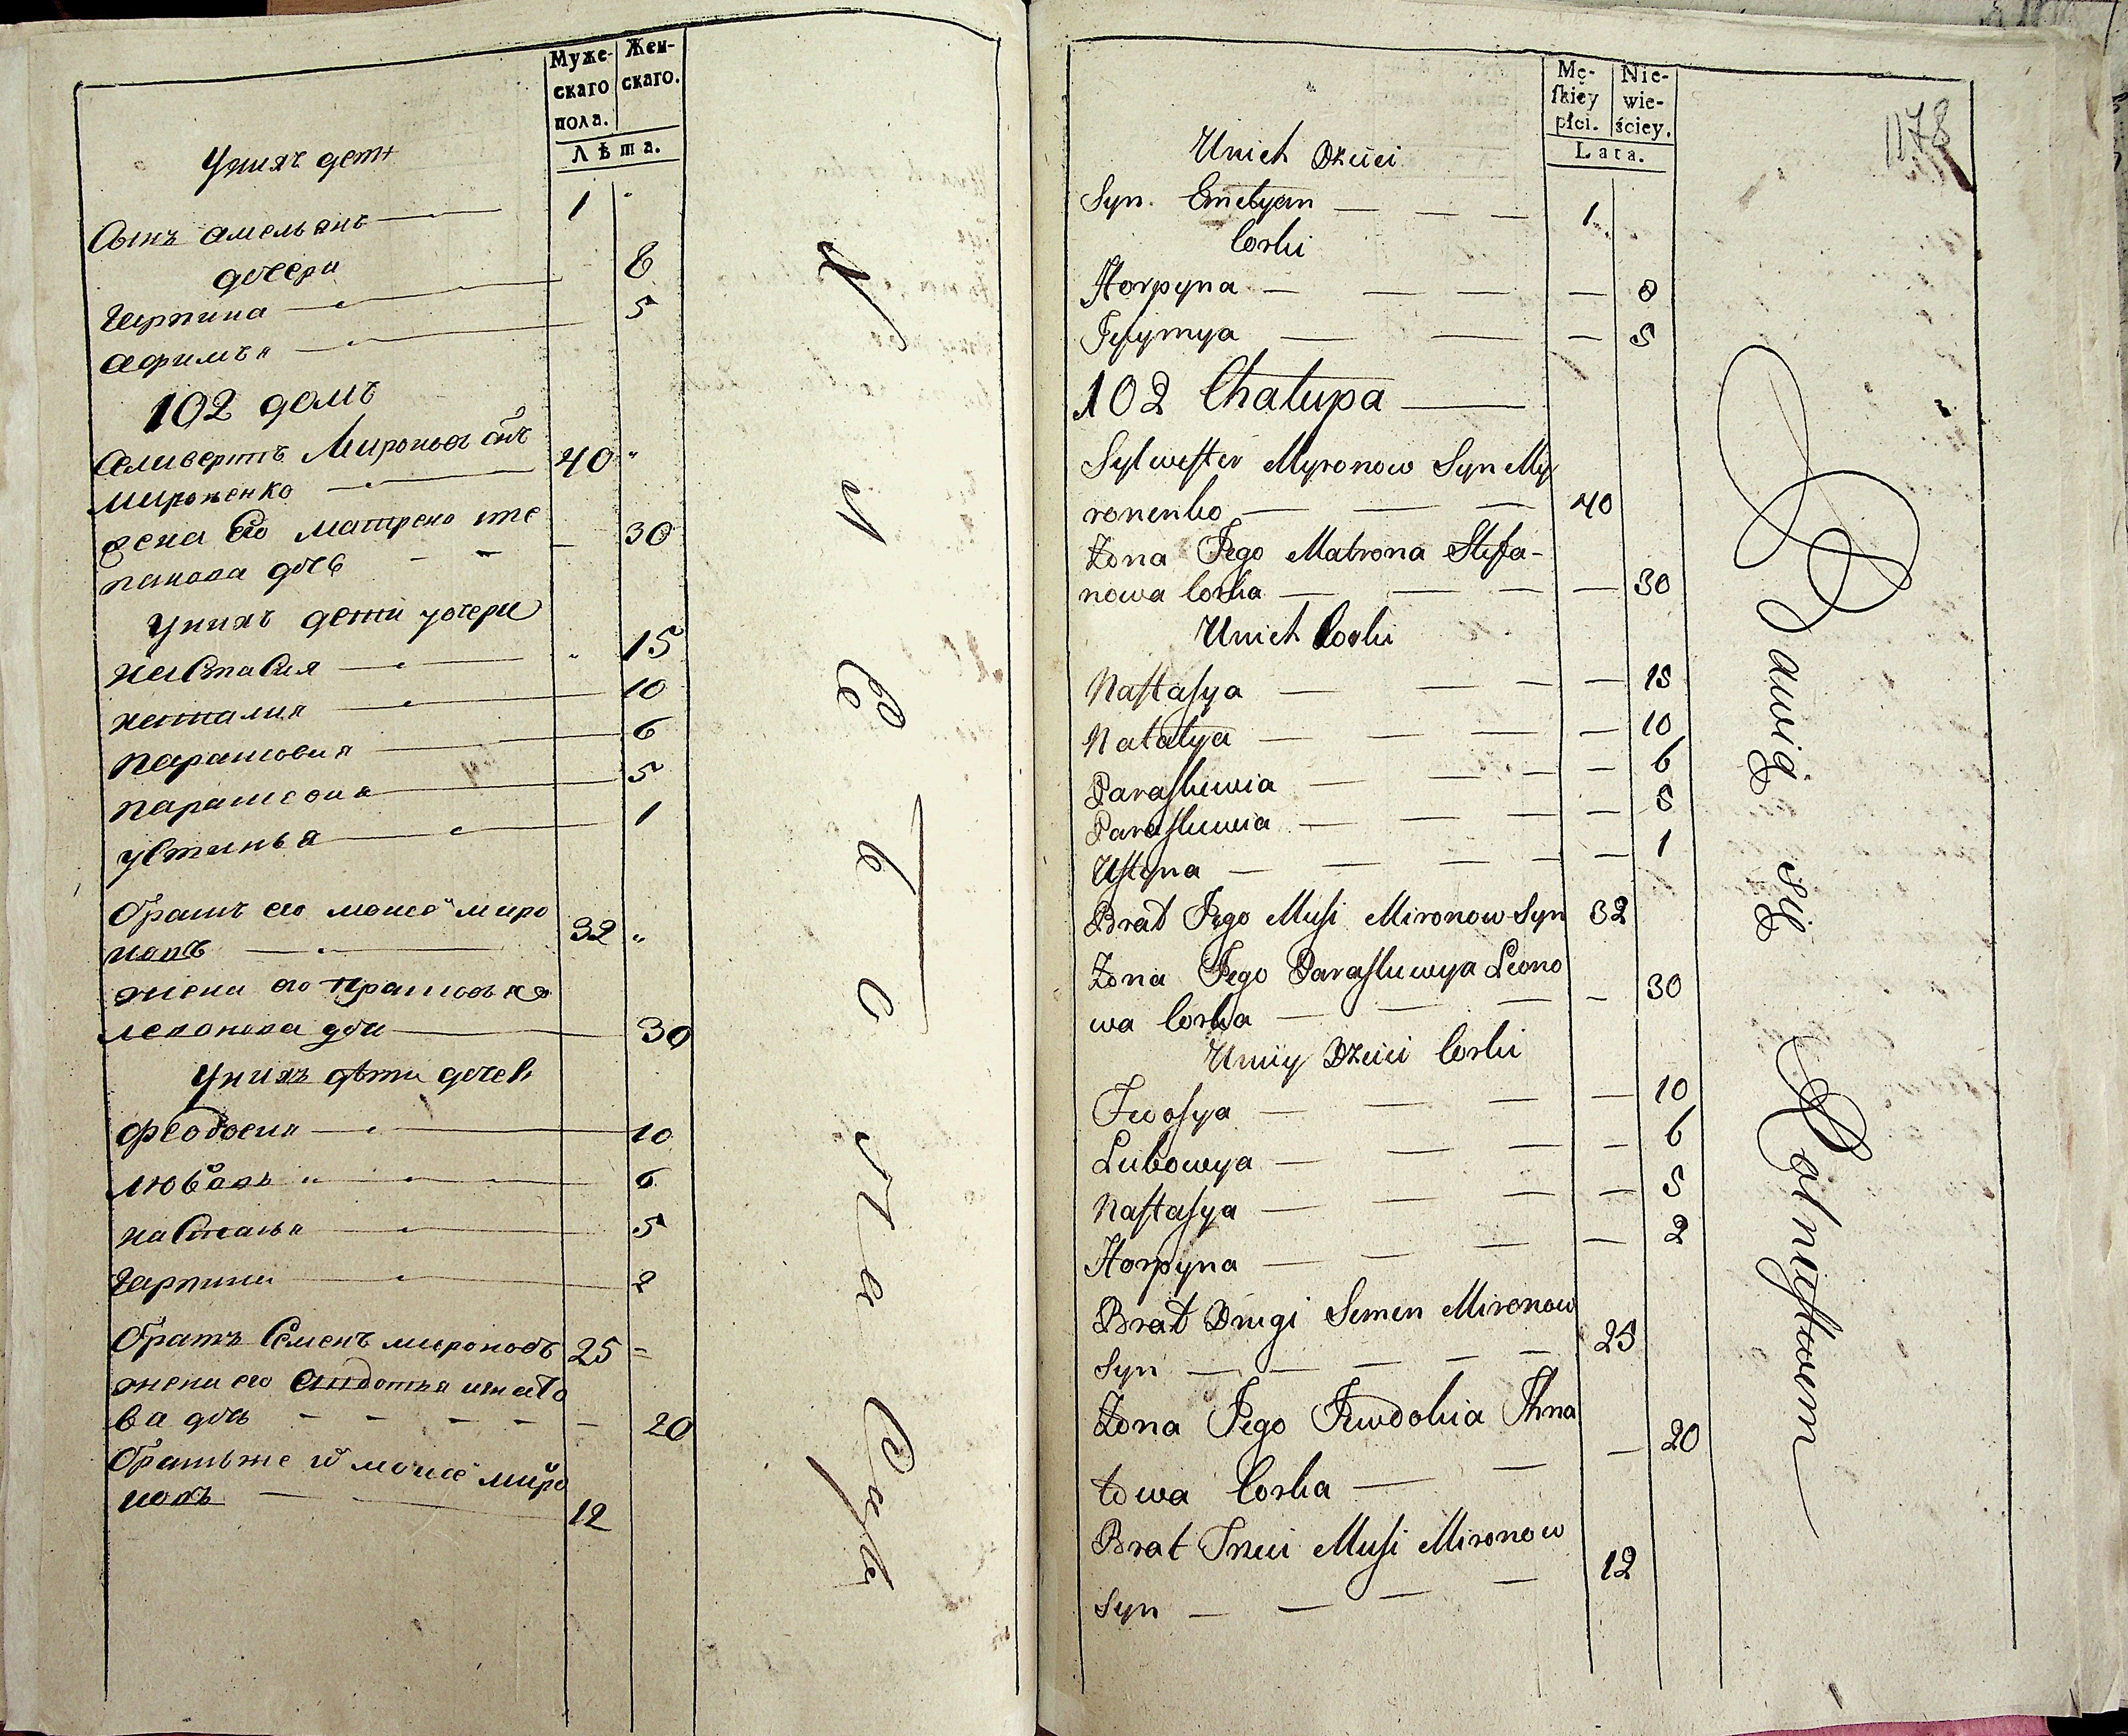 Муже-
скаго
пола.
Жен-
скаго.
Лѣта.
Унихъ дети
Сынъ амельянъ 1
дочери
Гарпина 8
афимъя 5
102 домъ
Селиверстъ Мироновъ снъ
мироненко 40
жена Его матрена сте
панова дочь 30
Унихъ дети дочери
настасия 15
наталия 10
парасковия 6
парасковия 5
устинья 1
братъ его моисе миро
новъ 32
жена его прасковъя
леонова дочь 30
Унихъ дѣти дочерь
феодосия 10
любовь 6
настасья 5
Гарпина 2
братъ Семенъ мироновъ 25
жена его Евдотья игнато
ва дочь 20
братъ же й моисе миро
новъ 12
Mę-
ſkiey
płci.
Nie-
wie-
ściey.
Lata.
1178
Unich Dzieci
Syn Emelyan 1
Corki
Horpyna 8
Jefymya 5
102 Chalupa
Sylweſter Myronow Syn My
ronenko 40
Zona Jego Matrona Stefa-
nowa Corka 30
Unich Corki
Naſtaſya 15
Natalya 10
Paraſkiewia 6
Paraſkiewia 5
Uſtyna 1
Brat Jego Muſi Mironow Syn 32
Zona Jego Paraſkiewya Leono
wa Corka 30
Uniiy Dzieci Corki
Fwoſya 10
Lubowya 6
Naſtaſya 5
Horpyna 2
Brat Drugi Semen Mironow
Syn 25
Zona Jego Jewdokia Ihna
towa Corka 20
Brat Trzeci Muſi Mironow
Syn 12
Bawią się Rolnictwem